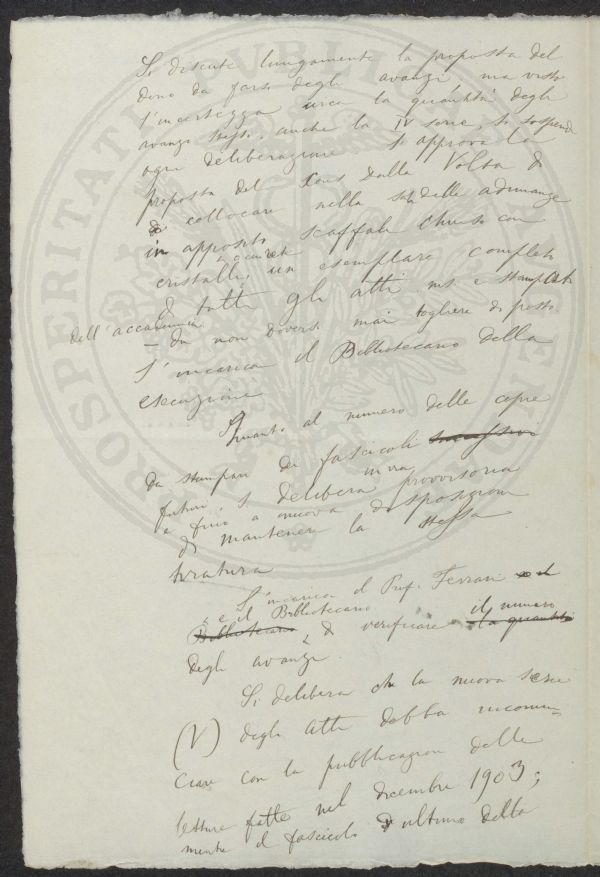 Si discute lungamente la proposta del
dono da farsi degli avanzi ma visto
l'incertezza circa la quantità degli
avanzi stessi, anche la IV serie, si sospende
ogni deliberazione. Si approva la
proposta del Cons dalla Volta di
di collocare nella sala delle adunanze
in apposito scaffale chiuso con
cristalli, un esemplare completo
di tutti gli atti ms. e stampati
dell'accademia
– da non doversi mai togliere di posto
S'incarica il Bibliotecario della
esecuzione
Quanto al numero delle copie
da stampare dei fascicoli successivi
futuri si delibera in via provvisoria
e fino a nuova disposizione
di mantenere la stessa
tiratura
S'incarica il Prof. Ferrari e il
e il Bibliotecario il numero
Bibliotecario di verificare la quantità
degli avanzi
Si delibera che la nuova serie
(V) degli Atti debba incomin-
ciare con la pubblicazione delle
letture fatte nel dicembre 1903;
mentre il fascicolo ultimo della
PVBLI
PROSPERITATI